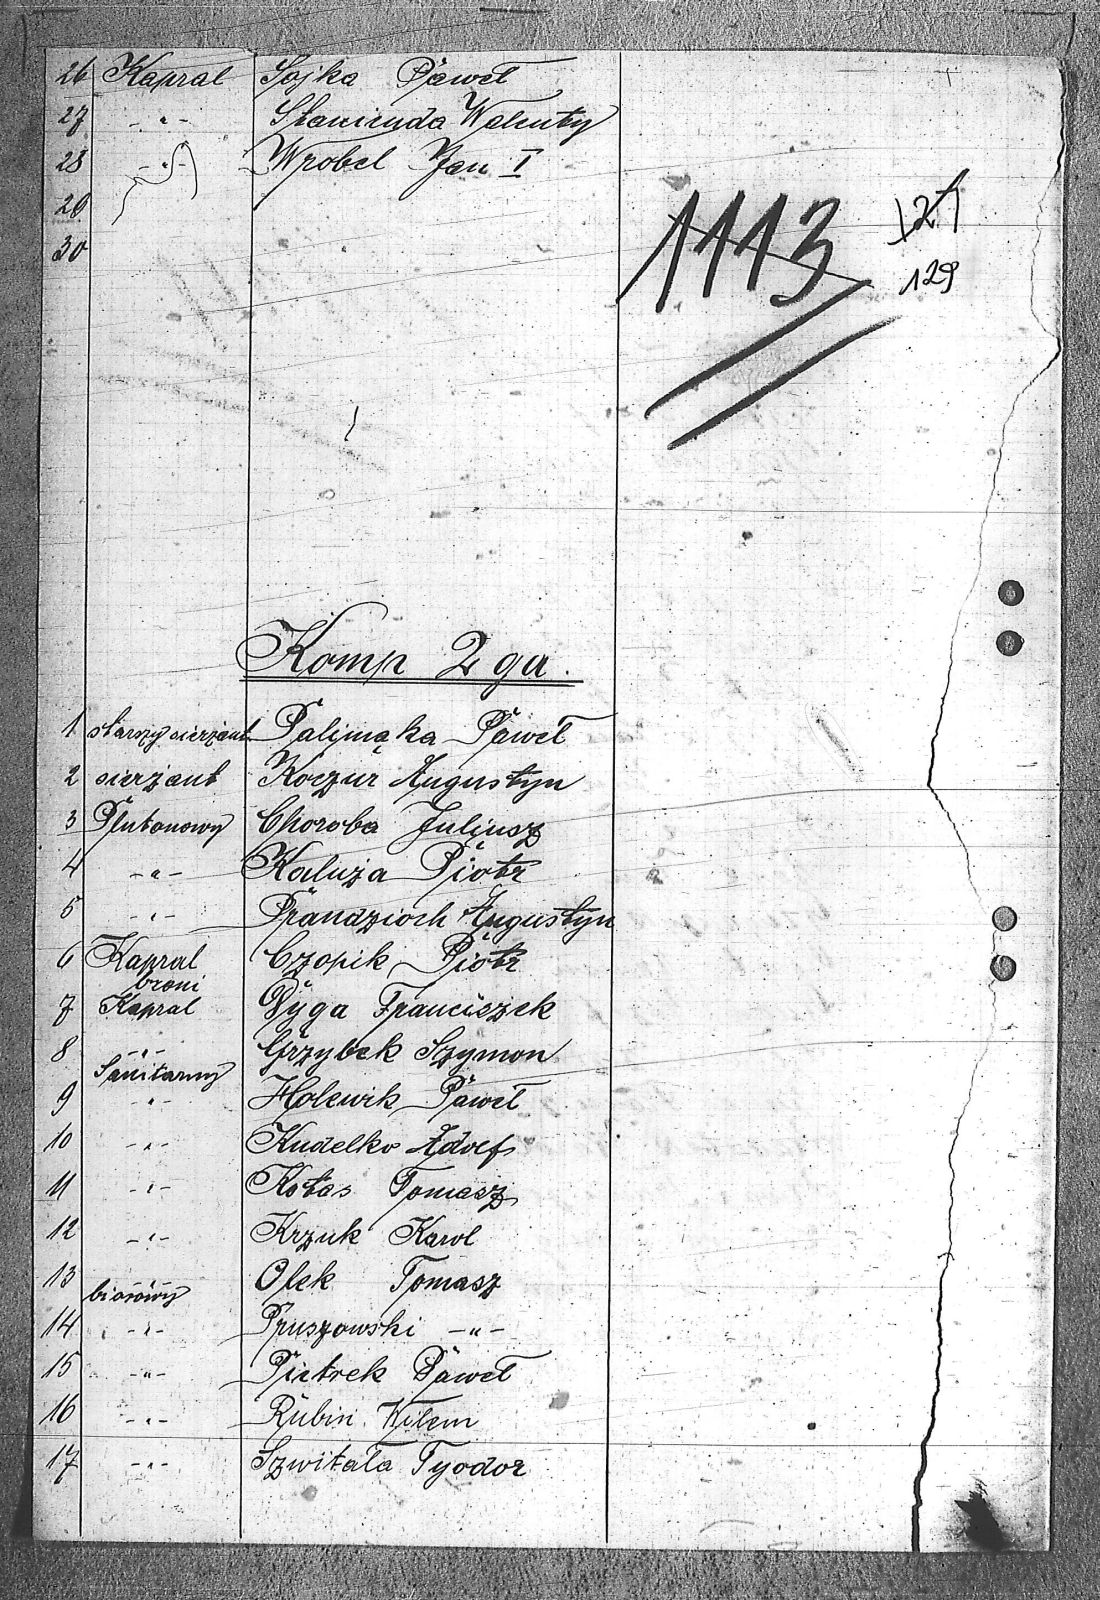 26 Kapral Sojka Paweł
27 -"- Stanienda Walenty
28 -"- Wrobel Jan I
29
30
1113
121
129
Komp 2ga.
1 starszy sierżant Palimąka Paweł
2 sierżant Koczur Augustyn
3 Plutonowy Choroba Juljusz
4 -"- Kaluża Piotr
5 -"- Prandzioch Augustyn
6 Kapral Czopik Piotr
broni
7 Kapral Dyga Franciszek
8 -"- Grzybek Szymon
Sanitarny
9 -"- Holewik Paweł
10 -"- Kudelko Adolf
11 -"- Kotas Tomasz
12 -"- Krzuk Karol
13 -"- Olek Tomasz
14 -"- Pruszowski -"-
15 -"- Pietrek Paweł
16 -"- Rubin Wilem
17 -"- Szwitala Tyodor